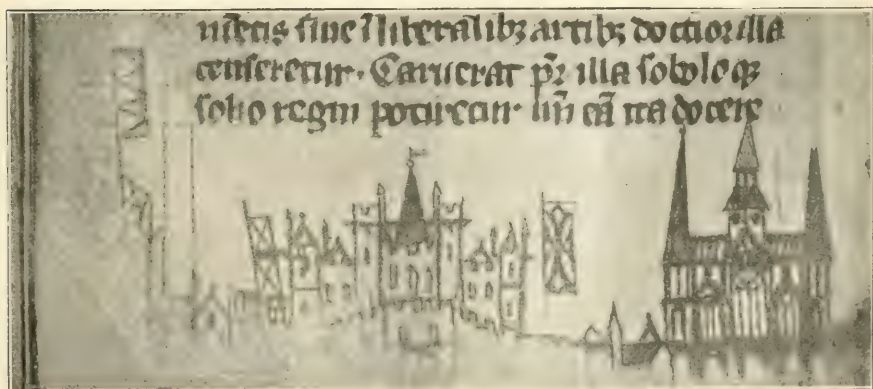 metis siue ĩ liberalibꝫ artibꝫ doctior illa
censeretur. Caruerat pr̃ illa sobole qꝫ
solio regni potiretur. Un̄ eā ita docere